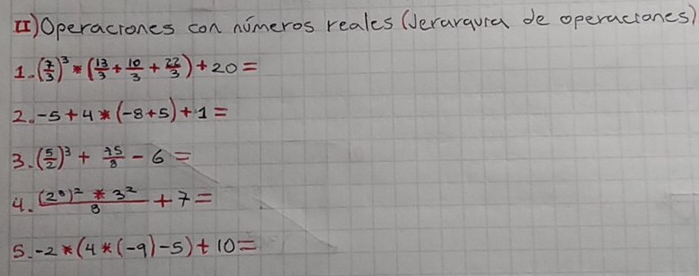 II) Operaciones con números reales (Jerarquía de operaciones)
1. (7/3)³ * (13/3 + 10/3 + 22/3) + 20 =
2. -5 + 4 * (-8+5) + 1 =
3. (5/2)³ + 75/8 - 6 =
4. (2⁰)² * 3² / 8 + 7 =
5. -2 * (4 * (-9) - 5) + 10 =